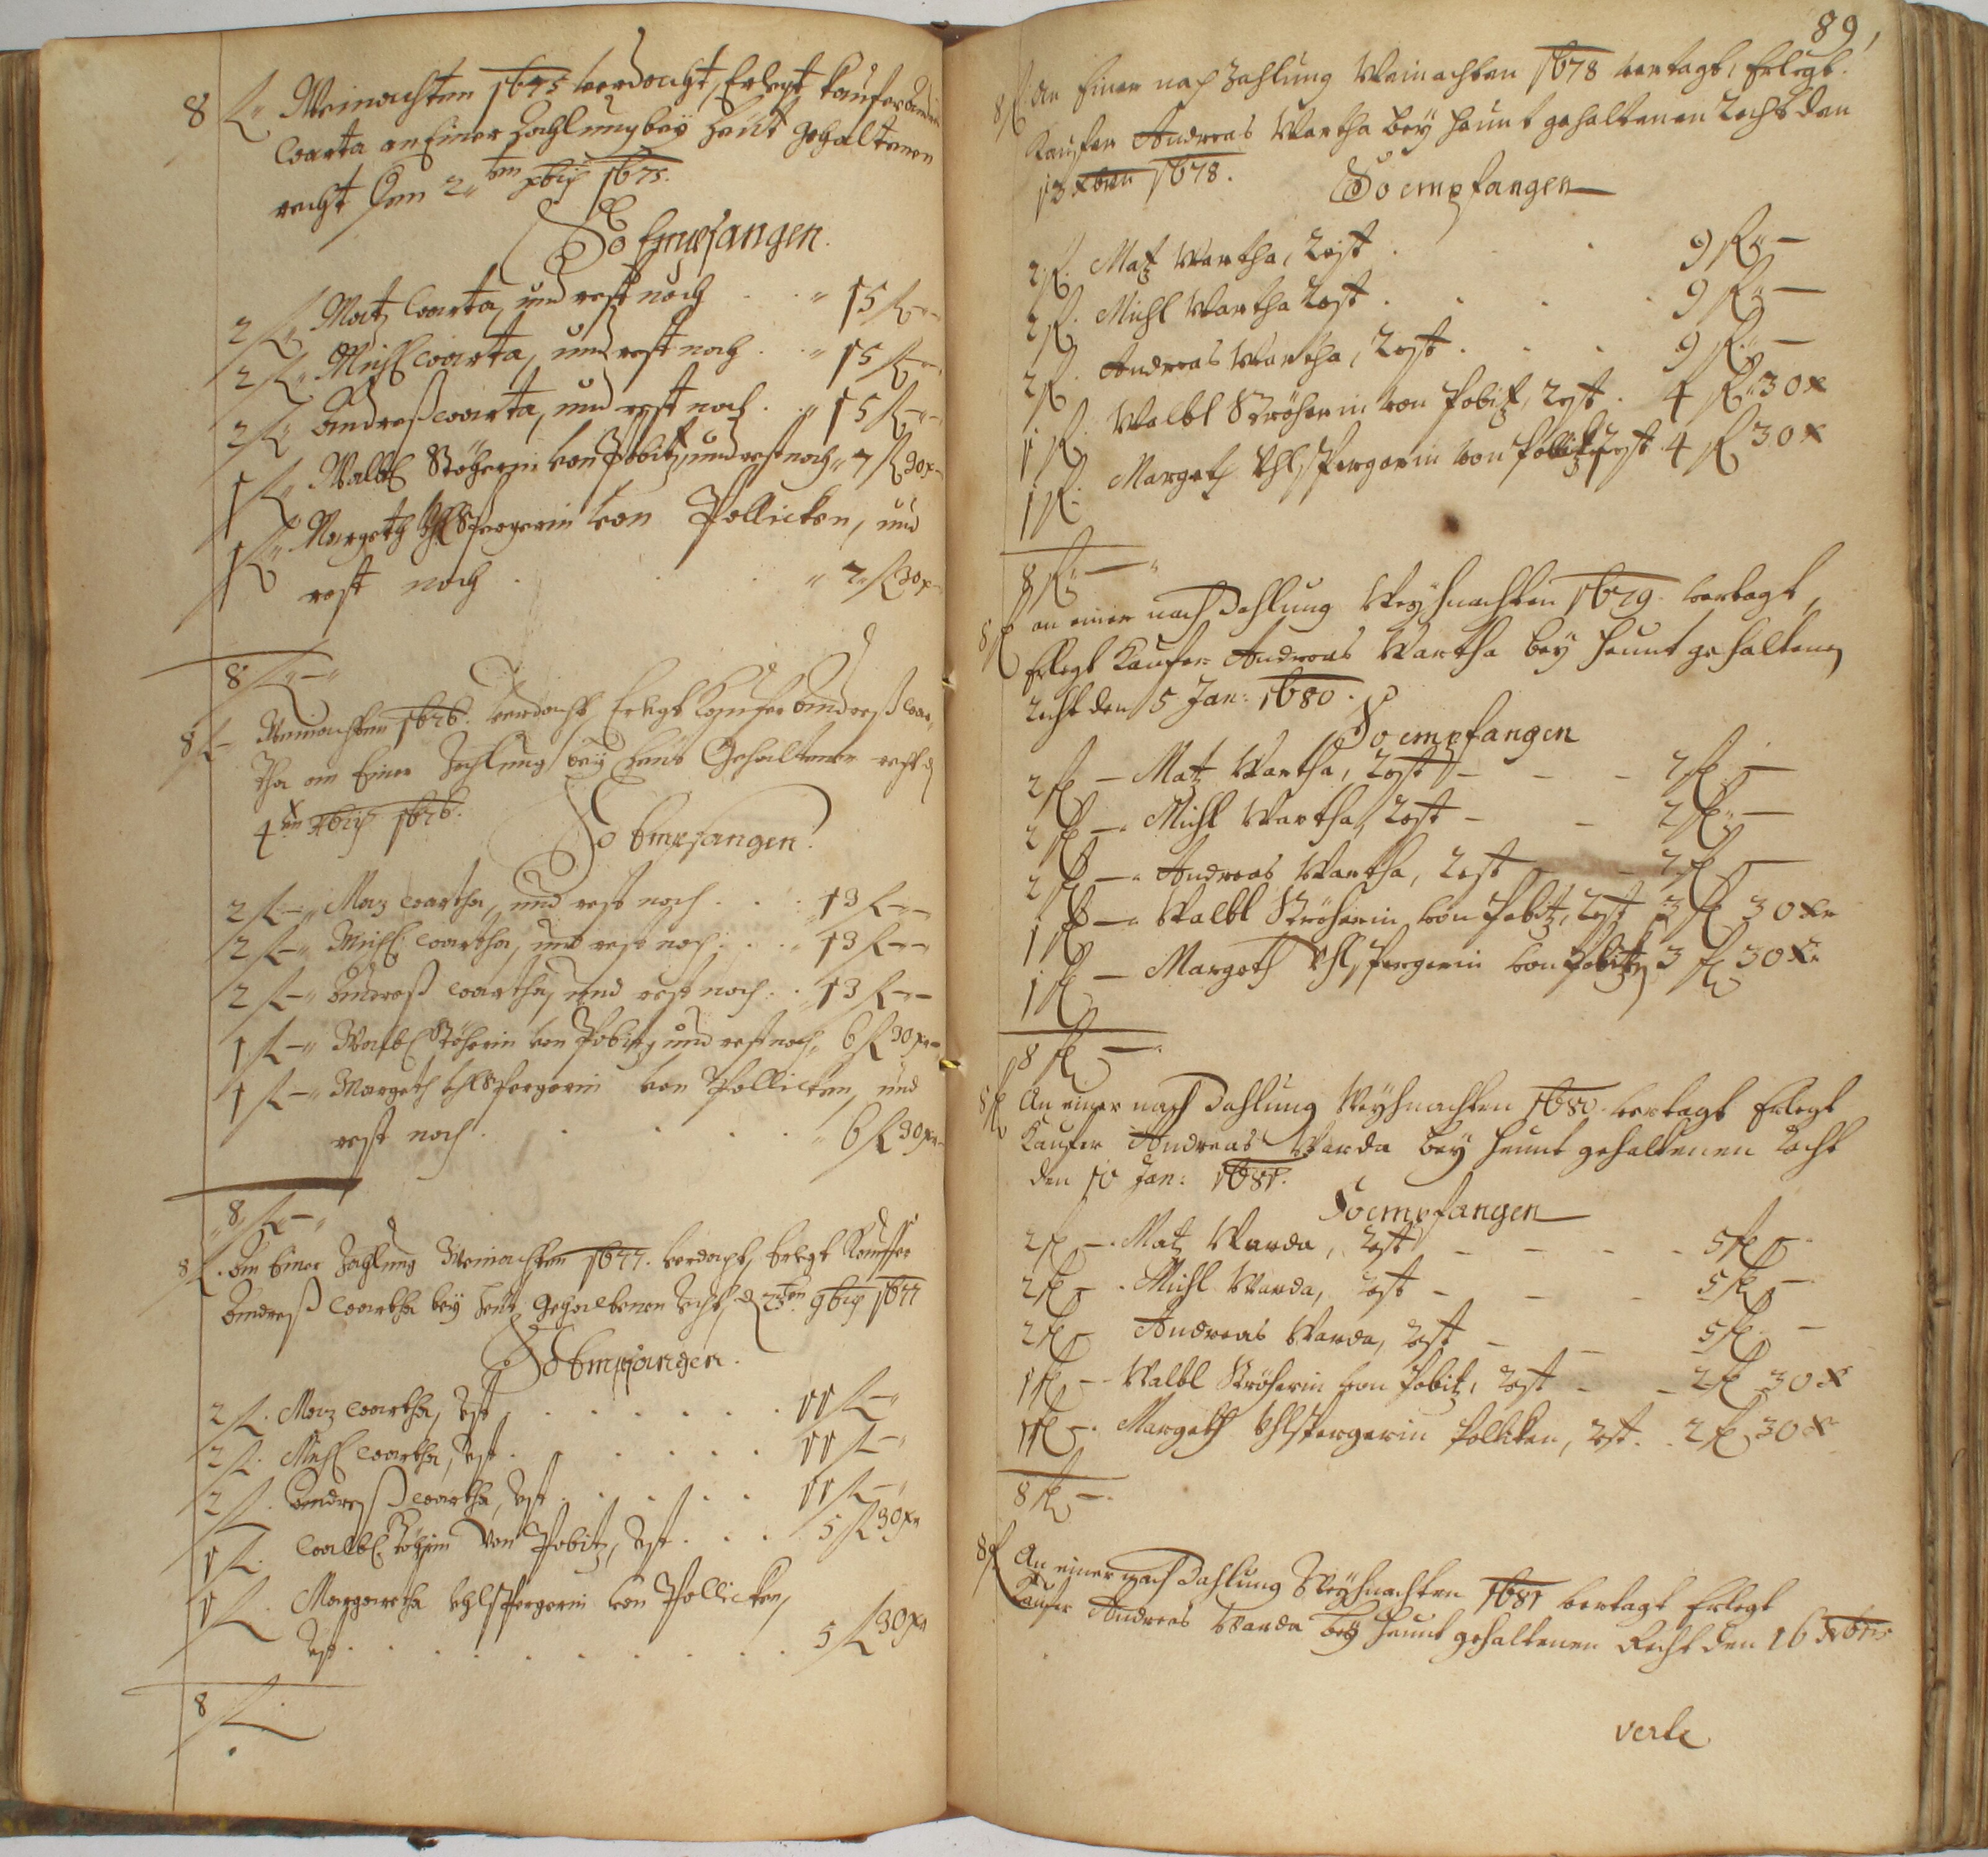 8 fl Weinachten 1675 verdacht, Erlegt Kaufer Andre
Warta an Einer Zachlung bey heut gehaltenen
recht den 2ten xbris 1675.
So Empfangen.
2 fl Matz Warta, und rest noch . . 15 fl –
2 fl Michl Warta, und rest noch . . 15 fl –
2 fl Andreß Warta, und rest noch . . 15 fl –
1 fl Walbl Stöherin von Pobitz, und rest noch 7 fl 30 x
1 fl Margeth Uhlspergerin von Pollicken, und
rest noch . . . 7 fl 30 x
8 fl –
8 fl – Weinachten 1676. verdacht, Erlegt Kaufer Andreß War
tha an Einer Zachlung bey heut Gehaltenen recht d
4ten xbris 1676.
So Empfangen.
2 fl – Maz Wartha, und rest noch . . . 13 fl –
2 fl – Michl Wartha, und rest noch . . . 13 fl –
2 fl – Andreß Wartha, und rest noch . . 13 fl –
1 fl – Walbl Stöherin von Pobitz und rest noch, 6 fl 30 x
1 fl – Margeth Uhlspergerin von Pollicken, und
rest noch . . . . . 6 fl 30 x
8 fl –
8 fl. An Einer Zachlung Weinachten 1677. verdacht, Erlegt Kauffer
Andreß Wartha bey heut Gehaltenen Recht, d 23ten 9bris 1677
So Empfangen.
2 fl. Maz Wartha, Rest . . . . . . 11 fl –
2 fl. Michl Wartha, Rest . . . . . . 11 fl –
2 fl. Andreß Wartha, Rest . . . . . 11 fl –
1 fl. Walbl Stöherin von Pobitz, Rest . . . 5 fl 30 x
1 fl. Margaretha Uhlspergerin von Pollicken,
Rest . . . . . . . . 5 fl 30 x
8 fl.
89,
8 fl an Einer nach Zahlung Weinachten 1678 vertagt, Erlegt
Kaufer Andreas Wartha bey heunt gehaltenen Recht den
13 xbris 1678.
So empfangen
2 fl. Matz Wartha, Rest . . . 9 fl –
2 fl. Michl Wartha Rest . . . . 9 fl –
2 fl. Andreas Wartha, Rest . . . 9 fl –
1 fl. Walbl Ströherin von Pobitz, Rest . 4 fl 30 x
1 fl. Margeth Uhlspergerin von Politz, Rest 4 fl 30 x
8 fl –
8 fl an einer nach Zahlung Weyhnachten 1679. vertagt,
Erlegt Kaufer Andreas Wartha bey heunt gehaltenen
Recht den 5 Jan: 1680.
So empfangen
2 fl – Matz Wartha, Rest – – – 7 fl –
2 fl – Michl Wartha, Rest – – 7 fl –
2 fl – Andreas Wartha, Rest – – 7 fl –
1 fl – Walbl Ströherin von Pobitz, Rest 3 fl 30 x
1 fl – Margeth Uhlspergerin von Pobitz 3 fl 30 x
8 fl –
8 fl An einer nach Zahlung Weyhnachten 1680. vertagt Erlegt
Kaufer Andreas Warda bey heunt gehaltenen Recht
den 10 Jan: 1681.
So empfangen
2 fl – Matz Warda, Rest – – – – 5 fl –
2 fl – Michl Warda, Rest – – – 5 fl –
2 fl – Andreas Warda, Rest – – 5 fl –
1 fl – Walbl Ströherin von Pobitz, Rest – – 2 fl 30 x
1 fl – Margeth Uhlspergerin Polliken, Rst. . 2 fl 30 x
8 fl –
8 fl An einer nach Zahlung Weyhnachten 1681 vertagt Erlegt
Kaufer Andreas Warda bey heunt gehaltenen Recht den 16 xbris
verte